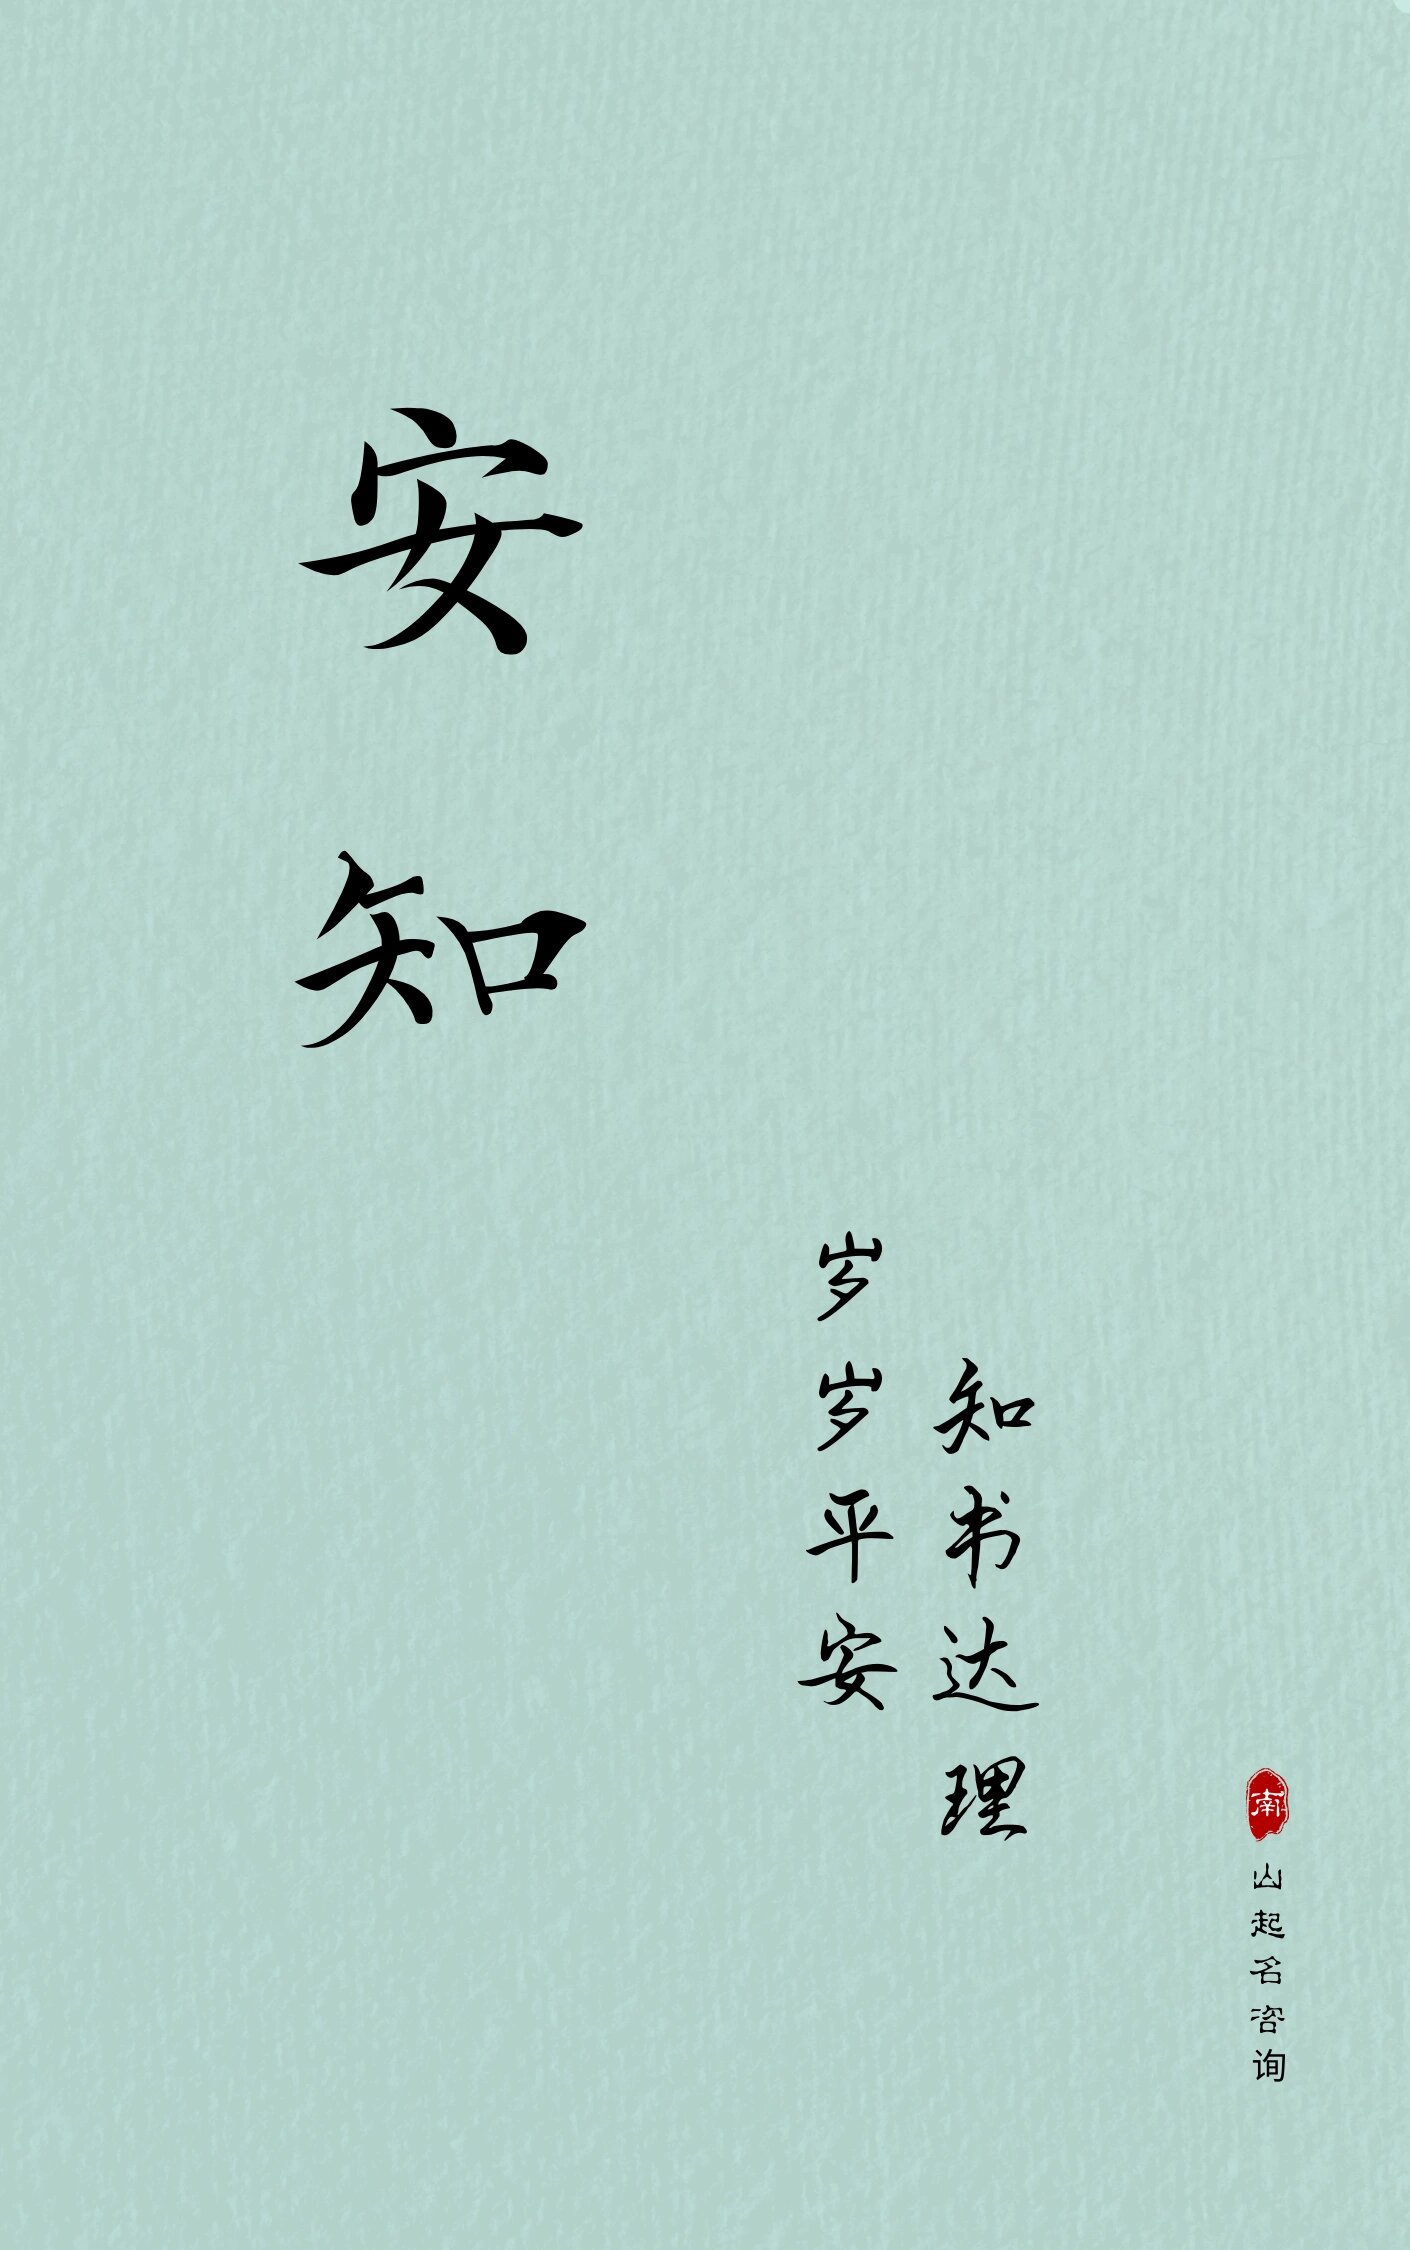 安知
岁岁平安
知书达理
南山起名咨询